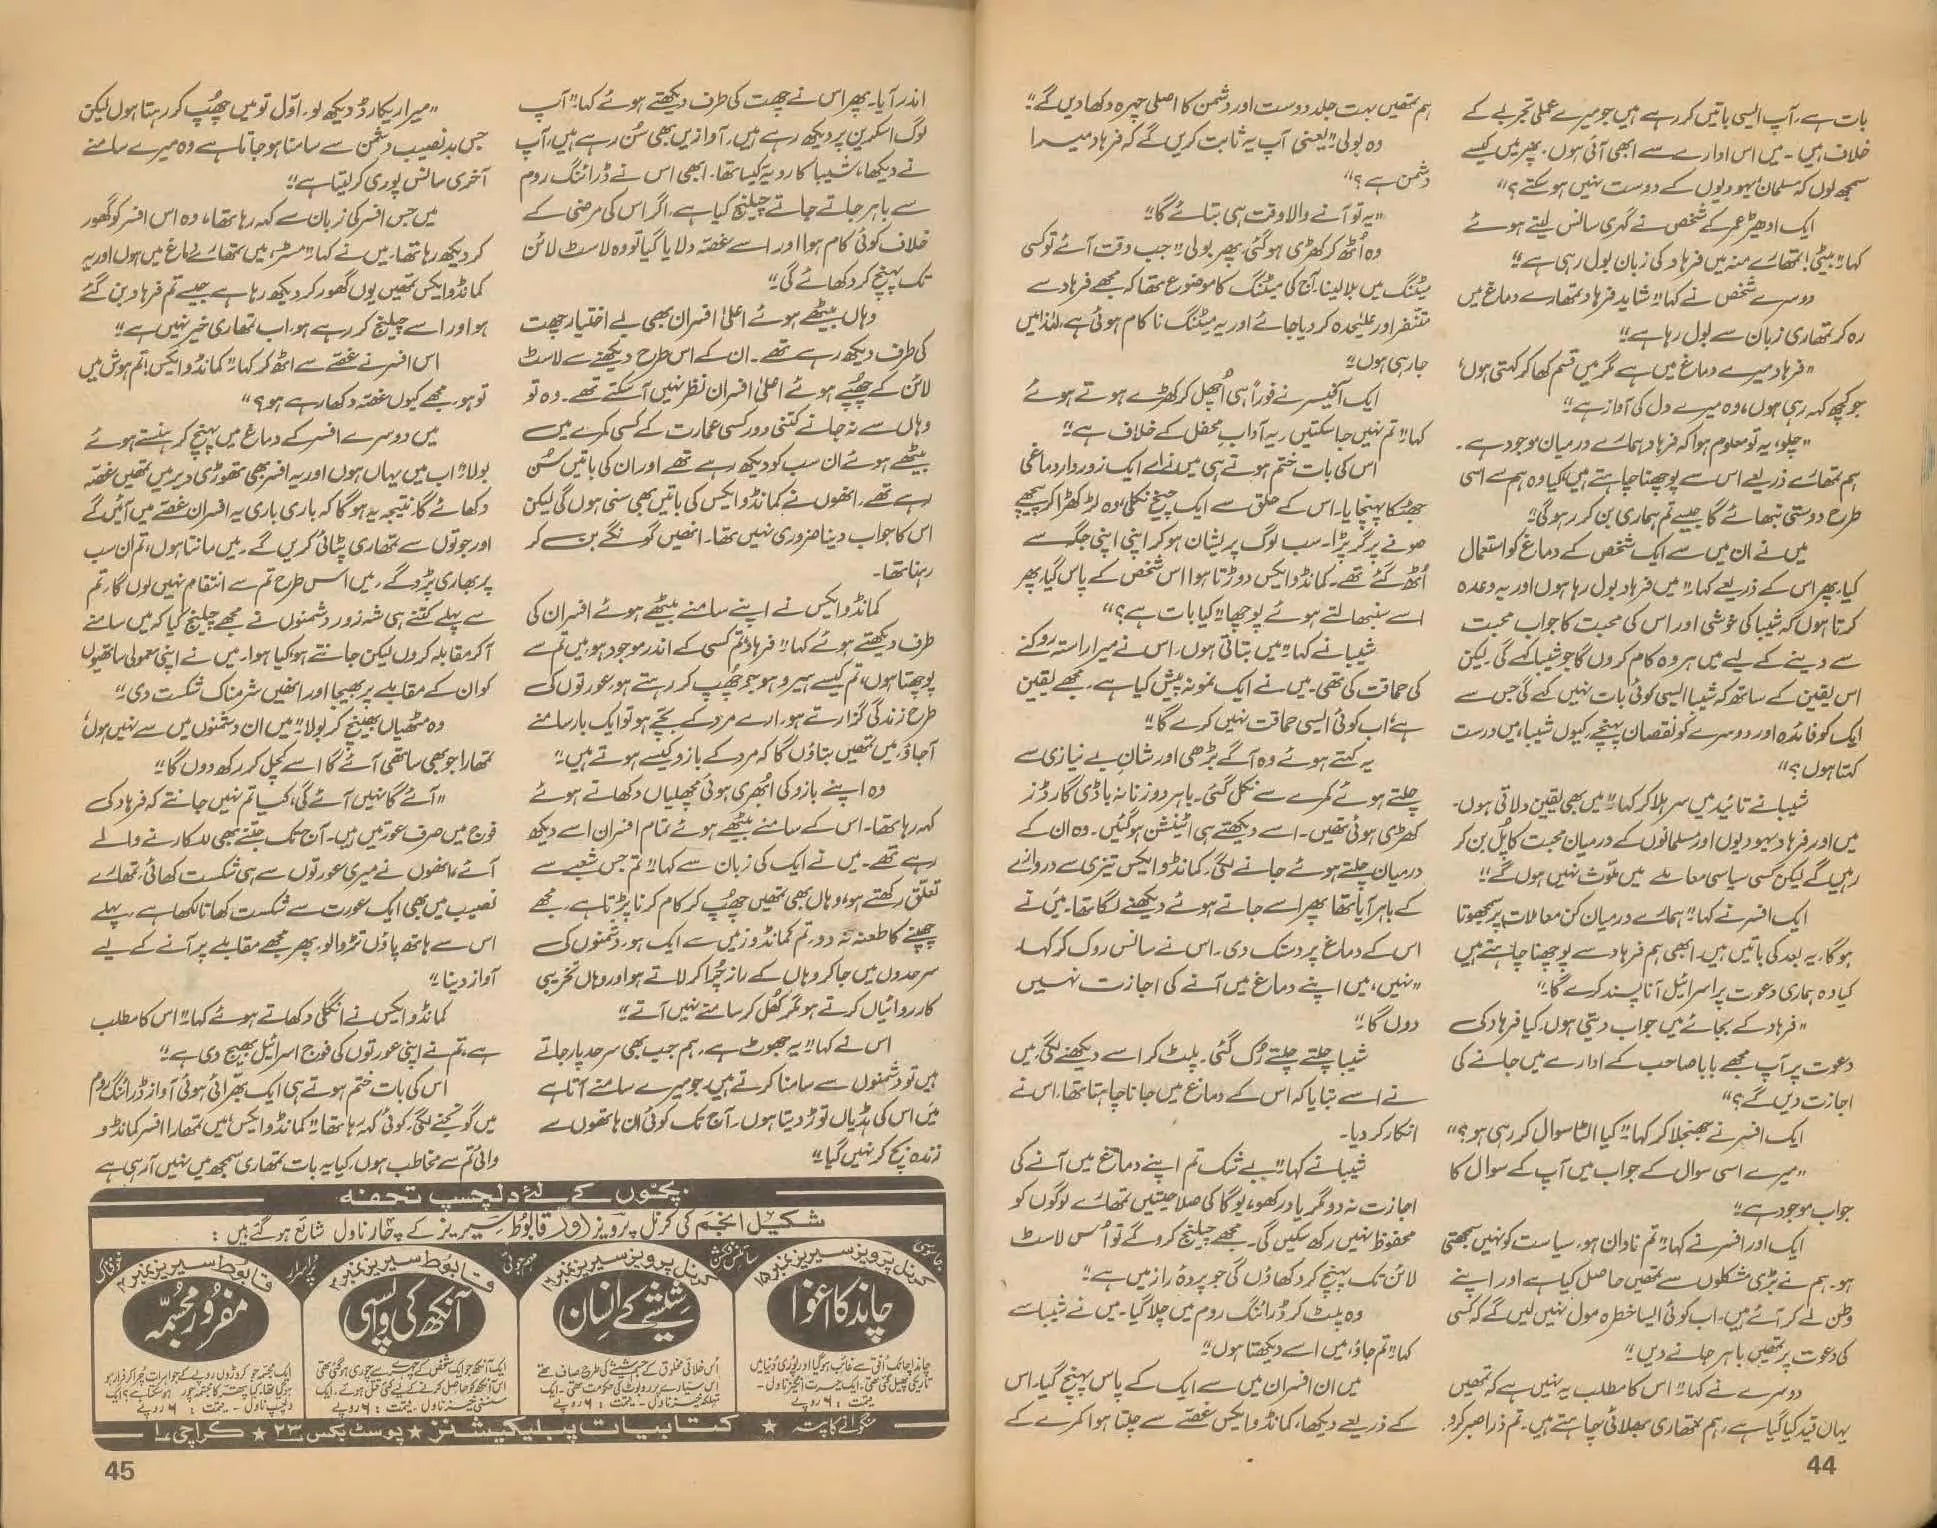 بات ہے، آپ ایسی باتیں کر رہے ہیں جو میرے عملی تجربے کے
خلاف ہیں۔ میں اس ادارے سے ابھی آئی ہوں۔ پھر میں کیسے
سمجھ لوں کہ مسلمان یہودیوں کے دوست نہیں ہو سکتے؟"
ایک ادھیڑ عمر کے شخص نے گہری سانس لیتے ہوئے
کہا: "بیٹی! تمھارے منہ میں فرہاد کی زبان بول رہی ہے۔"
دوسرے شخص نے کہا: "شاید فرہاد تمھارے دماغ میں
رہ کر تمھاری زبان سے بول رہا ہے۔"
"فرہاد میرے دماغ میں ہے مگر میں قسم کھا کر کہتی ہوں،
جو کچھ کہہ رہی ہوں، وہ میرے دل کی آواز ہے۔"
"چلو، یہ تو معلوم ہوا کہ فرہاد ہمارے درمیان موجود ہے۔
ہم تمھارے ذریعے اس سے پوچھنا چاہتے ہیں، کیا وہ ہم سے اسی
طرح دوستی نبھائے گا جیسے تم ہماری بن کر رہو گی؟"
میں نے ان میں سے ایک شخص کے دماغ کو استعمال
کیا۔ پھر اس کے ذریعے کہا: "میں فرہاد بول رہا ہوں اور یہ وعدہ
کرتا ہوں کہ شیبا کی خوشی اور اس کی محبت کا جواب محبت
سے دینے کے لیے میں ہر وہ کام کروں گا جو شیبا کہے گی لیکن
اس یقین کے ساتھ کہ شیبا ایسی کوئی بات نہیں کہے گی جس سے
ایک کو فائدہ اور دوسرے کو نقصان پہنچے۔ کیوں شیبا، میں درست
کہتا ہوں؟"
شیبا نے تائید میں سر ہلا کر کہا: "میں بھی یقین دلاتی ہوں۔
میں اور فرہاد یہودیوں اور مسلمانوں کے درمیان محبت کا پل بن کر
رہیں گے لیکن کسی سیاسی معاملے میں ملوث نہیں ہوں گے۔"
ایک افسر نے کہا: "ہمارے درمیان کن معاملات پر سمجھوتا
ہوگا، یہ بعد کی باتیں ہیں۔ ابھی ہم فرہاد سے پوچھنا چاہتے ہیں
کیا وہ ہماری دعوت پر اسرائیل آنا پسند کرے گا؟"
"فرہاد کے بجائے میں جواب دیتی ہوں، کیا فرہاد کی
دعوت پر آپ مجھے بابا صاحب کے ادارے میں جانے کی
اجازت دیں گے؟"
ایک افسر نے جھنجلا کر کہا: "کیا الٹا سوال کر رہی ہو؟"
"میرے اسی سوال کے جواب میں آپ کے سوال کا
جواب موجود ہے۔"
ایک اور افسر نے کہا: "تم نادان ہو، سیاست کو نہیں سمجھتی
ہو۔ ہم نے بڑی مشکلوں سے تمھیں حاصل کیا ہے اور اپنے
وطن لے کر آئے ہیں۔ اب کوئی ایسا خطرہ مول نہیں لیں گے کہ کسی
کی دعوت پر تمھیں باہر جانے دیں۔"
دوسرے نے کہا: "اس کا مطلب یہ نہیں ہے کہ تمھیں
یہاں قید کیا گیا ہے، ہم تمھاری بھلائی چاہتے ہیں۔ تم ذرا صبر کرو۔
ہم تمھیں بہت جلد دوست اور دشمن کا اصلی چہرہ دکھا دیں گے۔"
وہ بولی: "یعنی آپ یہ ثابت کریں گے کہ فرہاد میرا
دشمن ہے؟"
"یہ تو آنے والا وقت ہی بتائے گا۔"
وہ اُٹھ کر کھڑی ہوگئی، پھر بولی: "جب وقت آئے تو کسی
میٹنگ میں بلا لینا، آج کی میٹنگ کا موضوع تھا کہ مجھے فرہاد سے
متنفر اور علیحدہ کر دیا جائے اور یہ میٹنگ ناکام ہوئی ہے، لہٰذا میں
جا رہی ہوں۔"
ایک آفیسر نے فوراً ہی اُچھل کر کھڑے ہوتے ہوئے
کہا: "تم نہیں جا سکتیں۔ یہ آداب محفل کے خلاف ہے۔"
اس کی بات ختم ہوتے ہی میں نے اسے ایک زوردار دماغی
جھٹکا پہنچایا۔ اس کے حلق سے ایک چیخ نکلی، وہ لڑکھڑا کر پیچھے
صوفے پر گر پڑا۔ سب لوگ پریشان ہو کر اپنی اپنی جگہ سے
اُٹھ گئے تھے۔ کمانڈو ایکس دوڑتا ہوا اس شخص کے پاس گیا، پھر
اسے سنبھالتے ہوئے پوچھا: "کیا بات ہے؟"
شیبا نے کہا: "میں بتاتی ہوں۔ اس نے میرا راستہ روکنے
کی حماقت کی تھی۔ میں نے ایک نمونہ پیش کیا ہے۔ مجھے یقین
ہے، اب کوئی ایسی حماقت نہیں کرے گا۔"
یہ کہتے ہوئے وہ آگے بڑھی اور شانِ بے نیازی سے
چلتے ہوئے کمرے سے نکل گئی۔ باہر دو زنانہ باڈی گارڈز
کھڑی ہوئی تھیں۔ اسے دیکھتے ہی اٹینشن ہوگئیں۔ وہ ان کے
درمیان چلتے ہوئے جانے لگی۔ کمانڈو ایکس تیزی سے دروازے
کے باہر آیا تھا پھر اسے جاتے ہوئے دیکھنے لگا تھا۔ میں نے
اس کے دماغ پر دستک دی۔ اس نے سانس روک کر کہا۔
"نہیں، میں اپنے دماغ میں آنے کی اجازت نہیں
دوں گا۔"
شیبا چلتے چلتے رُک گئی۔ پلٹ کر اسے دیکھنے لگی، میں
نے اسے بتایا کہ اس کے دماغ میں جانا چاہتا تھا، اس نے
انکار کر دیا۔
شیبا نے کہا: "بے شک تم اپنے دماغ میں آنے کی
اجازت نہ دو مگر یاد رکھو، یوگا کی صلاحیتیں تمھارے لوگوں کو
محفوظ نہیں رکھ سکیں گی۔ مجھے چیلنج کرو گے تو اُس لاسٹ
لائن تک پہنچ کر دکھاؤں گی جو پردہ راز میں ہے۔"
وہ پلٹ کر ڈرائنگ روم میں چلا گیا۔ میں نے شیبا سے
کہا: "تم جاؤ، میں اسے دیکھتا ہوں۔"
میں ان افسران میں سے ایک کے پاس پہنچ گیا۔ اس
کے ذریعے دیکھا، کمانڈو ایکس غصے سے چلتا ہوا کمرے کے
44
اندر آیا۔ پھر اس نے چھت کی طرف دیکھتے ہوئے کہا: "آپ
لوگ اسکرین پر دیکھ رہے ہیں۔ آوازیں بھی سُن رہے ہیں، آپ
نے دیکھا، شیبا کا رویہ کیسا تھا۔ ابھی اس نے ڈرائنگ روم
سے باہر جاتے جاتے چیلنج کیا ہے، اگر اس کی مرضی کے
خلاف کوئی کام ہوا اور اسے غصہ دلایا گیا تو وہ لاسٹ لائن
تک پہنچ کر دکھائے گی۔"
وہاں بیٹھے ہوئے اعلیٰ افسران بھی بے اختیار چھت
کی طرف دیکھ رہے تھے۔ ان کے اس طرح دیکھنے سے لاسٹ
لائن کے چھپے ہوئے اعلیٰ افسران نظر نہیں آ سکتے تھے۔ وہ تو
وہاں سے نہ جانے کتنی دور کسی عمارت کے کسی کمرے میں
بیٹھے ہوئے ان سب کو دیکھ رہے تھے اور ان کی باتیں سُن
رہے تھے۔ انھوں نے کمانڈو ایکس کی باتیں بھی سنی ہوں گی لیکن
اس کا جواب دینا ضروری نہیں تھا۔ انھیں گونگے بن کر
رہنا تھا۔
کمانڈو ایکس نے اپنے سامنے بیٹھے ہوئے افسران کی
طرف دیکھتے ہوئے کہا: "فرہاد، تم کسی کے اندر موجود ہو، میں تم سے
پوچھتا ہوں، تم کیسے ہیرو ہو جو چھپ کر رہتے ہو، عورتوں کی
طرح زندگی گزارتے ہو۔ ارے مرد کے بچے ہو تو ایک بار سامنے
آجاؤ، میں تمھیں بتاؤں گا کہ مرد کے بازو کیسے ہوتے ہیں۔"
وہ اپنے بازو کی اُبھری ہوئی مچھلیاں دکھاتے ہوئے
کہہ رہا تھا۔ اس کے سامنے بیٹھے ہوئے تمام افسران اسے دیکھ
رہے تھے۔ میں نے ایک کی زبان سے کہا: "تم جس شعبے سے
تعلق رکھتے ہو، وہاں بھی تمھیں چھپ کر کام کرنا پڑتا ہے، مجھے
چھپنے کا طعنہ نہ دو، تم کمانڈوز میں سے ایک ہو۔ دشمنوں کی
سرحدوں میں جا کر وہاں کے راز چُرا کر لاتے ہو اور وہاں تخریبی
کارروائیاں کرتے ہو مگر کھل کر سامنے نہیں آتے۔"
اس نے کہا: "یہ جھوٹ ہے، ہم جب بھی سرحد پار جاتے
ہیں تو دشمنوں سے سامنا کرتے ہیں۔ جو میرے سامنے آتا ہے
میں اس کی ہڈیاں توڑ دیتا ہوں۔ آج تک کوئی ان ہاتھوں سے
زندہ بچ کر نہیں گیا۔"
"میرا ریکارڈ دیکھ لو۔ اوّل تو میں چھپ کر رہتا ہوں لیکن
جس بدنصیب دشمن سے سامنا ہو جاتا ہے وہ میرے سامنے
آخری سانس پوری کر لیتا ہے۔"
میں جس افسر کی زبان سے کہہ رہا تھا، وہ اس افسر کو گھور
کر دیکھ رہا تھا، میں نے کہا: "مسٹر، میں تمھارے دماغ میں ہوں اور یہ
کمانڈو ایکس تمھیں یوں گھور کر دیکھ رہا ہے جیسے تم فرہاد بن گئے
ہو اور اسے چیلنج کر رہے ہو، اب تمھاری خیر نہیں ہے۔"
اس افسر نے غصے سے اٹھ کر کہا: "کمانڈو ایکس! تم ہوش میں
تو ہو، مجھے کیوں غصہ دکھا رہے ہو؟"
میں دوسرے افسر کے دماغ میں پہنچ کر ہنستے ہوئے
بولا: "اب میں یہاں ہوں اور یہ افسر بھی تھوڑی دیر میں تمھیں غصہ
دکھائے گا، نتیجہ یہ ہوگا کہ باری باری یہ افسران غصے میں آئیں گے
اور جوتوں سے تمھاری پٹائی کریں گے۔ میں مانتا ہوں، تم ان سب
پر بھاری پڑو گے۔ میں اس طرح تم سے انتقام نہیں لوں گا، تم
سے پہلے کتنے ہی شہ زور دشمنوں نے مجھے چیلنج کیا کہ میں سامنے
آکر مقابلہ کروں لیکن جانتے ہو کیا ہوا۔ میں نے اپنی معمولی ساتھیوں
کو ان کے مقابلے پر بھیجا اور انھیں شرمناک شکست دی۔"
وہ مٹھیاں بھینچ کر بولا: "میں ان دشمنوں میں سے نہیں ہوں،
تمھارا جو بھی ساتھی آئے گا اسے کچل کر رکھ دوں گا۔"
"آئے گا نہیں آئے گی، کیا تم نہیں جانتے کہ فرہاد کی
فوج میں صرف عورتیں ہیں۔ آج تک جتنے بھی للکارنے والے
آئے، انھوں نے میری عورتوں سے ہی شکست کھائی، تمھارے
نصیب میں بھی ایک عورت سے شکست کھانا لکھا ہے۔ پہلے
اس سے ہاتھ پاؤں تڑوا لو، پھر مجھے مقابلے پر آنے کے لیے
آواز دینا۔"
کمانڈو ایکس نے انگلی دکھاتے ہوئے کہا: "اس کا مطلب
ہے، تم نے اپنی عورتوں کی فوج اسرائیل بھیج دی ہے۔"
اس کی بات ختم ہوتے ہی ایک بھرائی ہوئی آواز ڈرائنگ روم
میں گونجنے لگی۔ کوئی کہہ رہا تھا: "کمانڈو ایکس، میں تمھارا افسر کمانڈو
وائی تم سے مخاطب ہوں، کیا یہ بات تمھاری سمجھ میں نہیں آ رہی ہے
بچوں کے لئے دلچسپ تحفہ
شکیل انجم کی کرنل پرویز اور قابوط سیریز کے چار ناول شائع ہو گئے ہیں:
جاسوسی
کرنل پرویز سیریز نمبر ۱۵
چاند کا اغوا
چاند اچانک اُفق سے غائب ہو گیا اور پوری دُنیا میں
تاریکی پھیل گئی تھی۔ ایک حیرت انگیز ناول۔
قیمت: ۶ روپے
سائنس فکشن
کرنل پرویز سیریز نمبر ۱۶
شیشے کے انسان
اُس خلائی مخلوق کے جسم شیشے کی طرح صاف تھے
اس سیارے پر روبوٹ کی حکومت تھی۔ ایک
تہلکہ خیز ناول۔ قیمت: ۶ روپے
مہم جوئی
قابوط سیریز نمبر ۳
آنکھ کی واپسی
ایک آنکھ جو ایک شخص کے چہرے سے چوری ہو گئی تھی
اس آنکھ کو حاصل کرنے کے لیے کئی قتل ہوئے۔ ایک
سنسنی خیز ناول۔ قیمت: ۶ روپے
پُراسرار
قابوط سیریز نمبر ۴
مفرور مجسّمہ
خوفناک
ایک مجسمہ جو کروڑوں روپے کے جواہرات چُرا کر فرار ہو
ہو گیا تھا۔ کیا پتھر کا مجسمہ چور ہو سکتا ہے؟ ایک
دلچسپ ناول۔ قیمت: ۶ روپے
منگوانے کا پتہ ★ کتابیات پبلیکیشنز ★ پوسٹ بکس ۲۳ ★ کراچی ۱
45